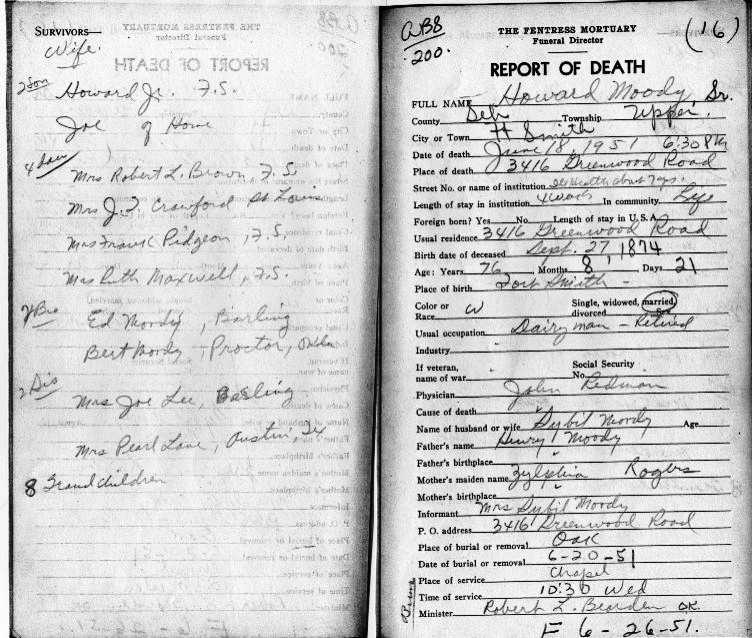 SURVIVORS—
Wife.
2 Son
Howard Jr. F.S.
Joe of Home
4 dau
Mrs Robert L. Brown, F.S.
Mrs J.J. Crawford St Louis
Mrs Frank Pidgeon, F.S.
Mrs Ruth Maxwell, F.S.
2 Bro
Ed Moody, Barling
Bert Moody, Proctor, Okla
2 Sis
Mrs Joe Lee, Barling
Mrs Pearl Lane, Austin, Tex
8 Grandchildren
AB8
200.
(16)
THE FENTRESS MORTUARY
Funeral Director
REPORT OF DEATH
FULL NAME Howard Moody, Sr.
County Seb Township Upper
City or Town Ft Smith
Date of death June 18, 1951 6:30 PM
Place of death 3416 Greenwood Road
Street No. or name of institution Ill Health about 7 yrs.
Length of stay in institution 4 weeks In community Life
Foreign born? Yes No Length of stay in U.S.A.
Usual residence 3416 Greenwood Road
Birth date of deceased Sept. 27, 1874
Age: Years 76 Months 8 Days 21
Place of birth Fort Smith
Color or
Race W Single, widowed, married,
divorced
Usual occupation Dairyman - Retired
Industry
If veteran,
name of war Social Security
No.
Physician John Redman
Cause of death
Name of husband or wife Sybil Moody Age
Father's name Henry Moody
Father's birthplace
Mother's maiden name Zylphia Rogers
Mother's birthplace
Informant Mrs Sybil Moody
P. O. address 3416 Greenwood Road
Place of burial or removal Oak
Date of burial or removal 6-20-51
Place of service Chapel
Time of service 10:30 Wed
Minister Robert L. Bearden OK.
F 6-26-51.